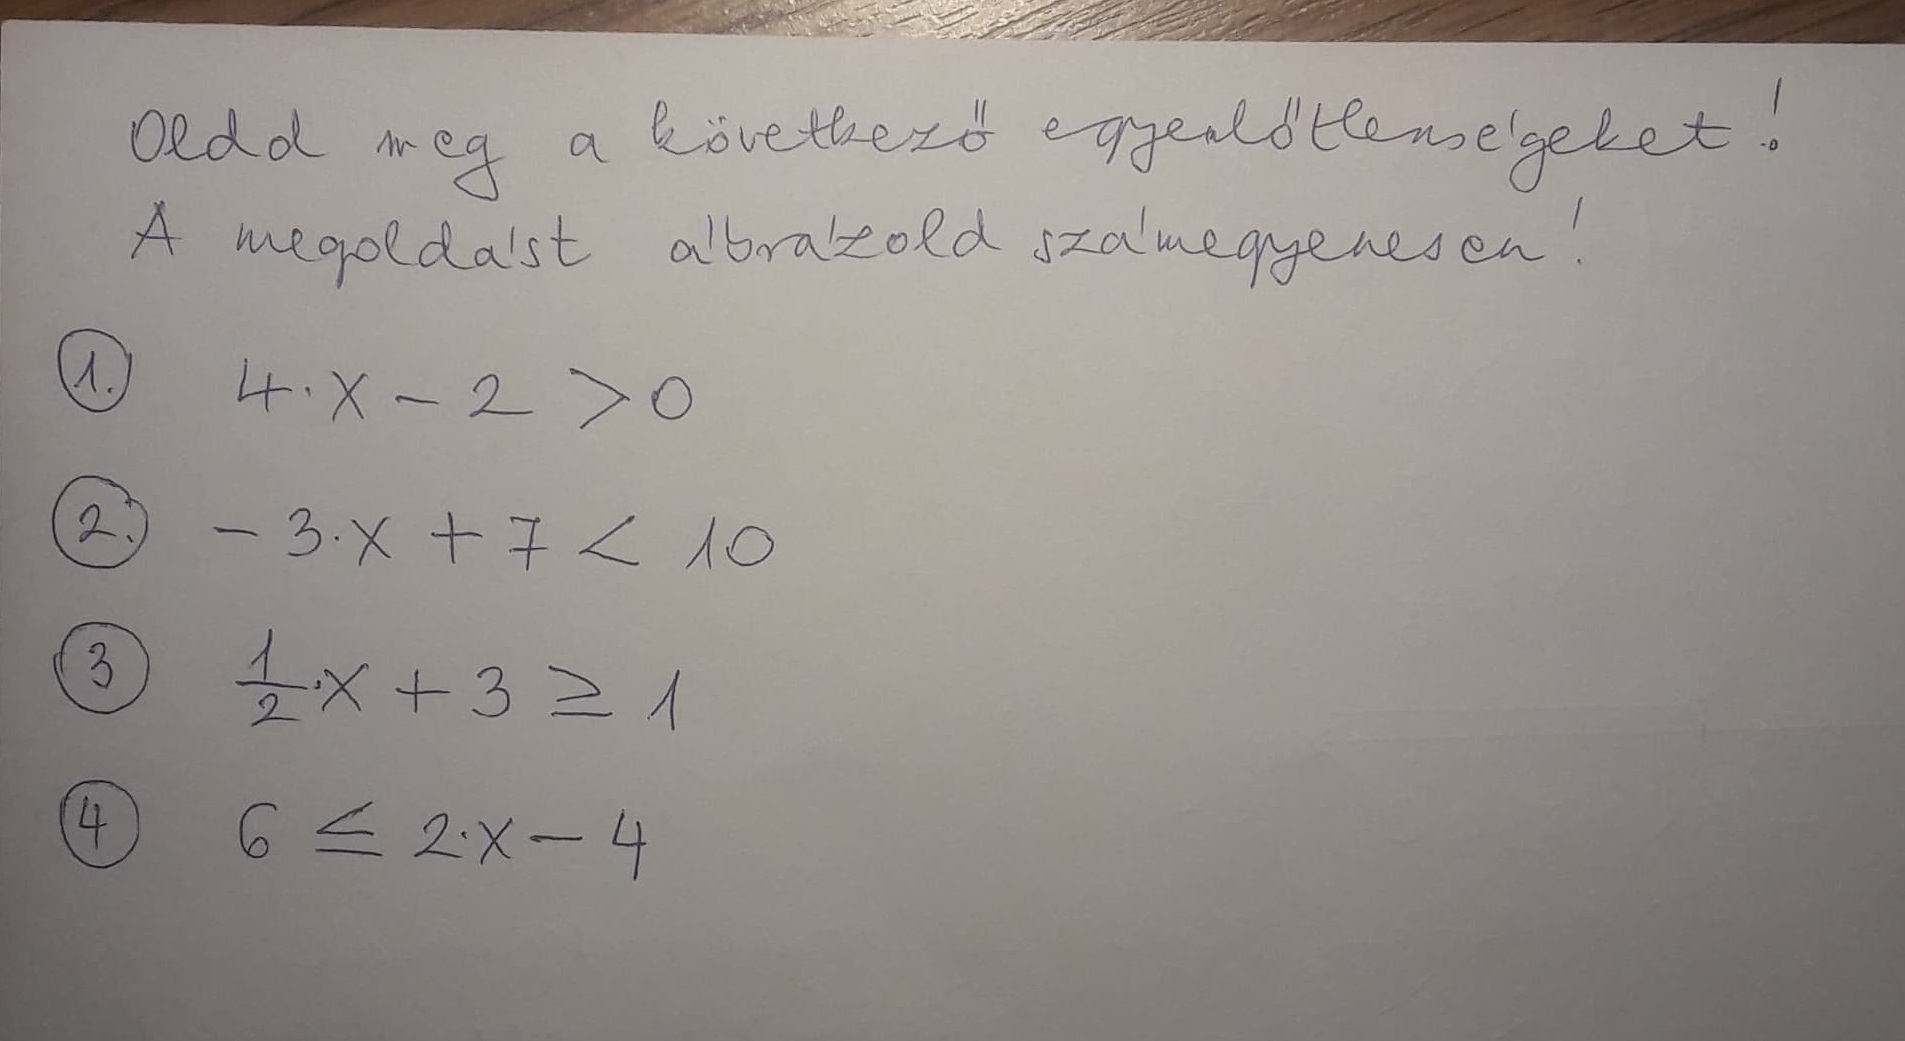 Oldd meg a következő egyenlőtlenségeket!
A megoldást ábrázold számegyenesen!
1. 4·x - 2 > 0
2. - 3·x + 7 < 10
3 1/2·x + 3 ≥ 1
4 6 ≤ 2·x - 4